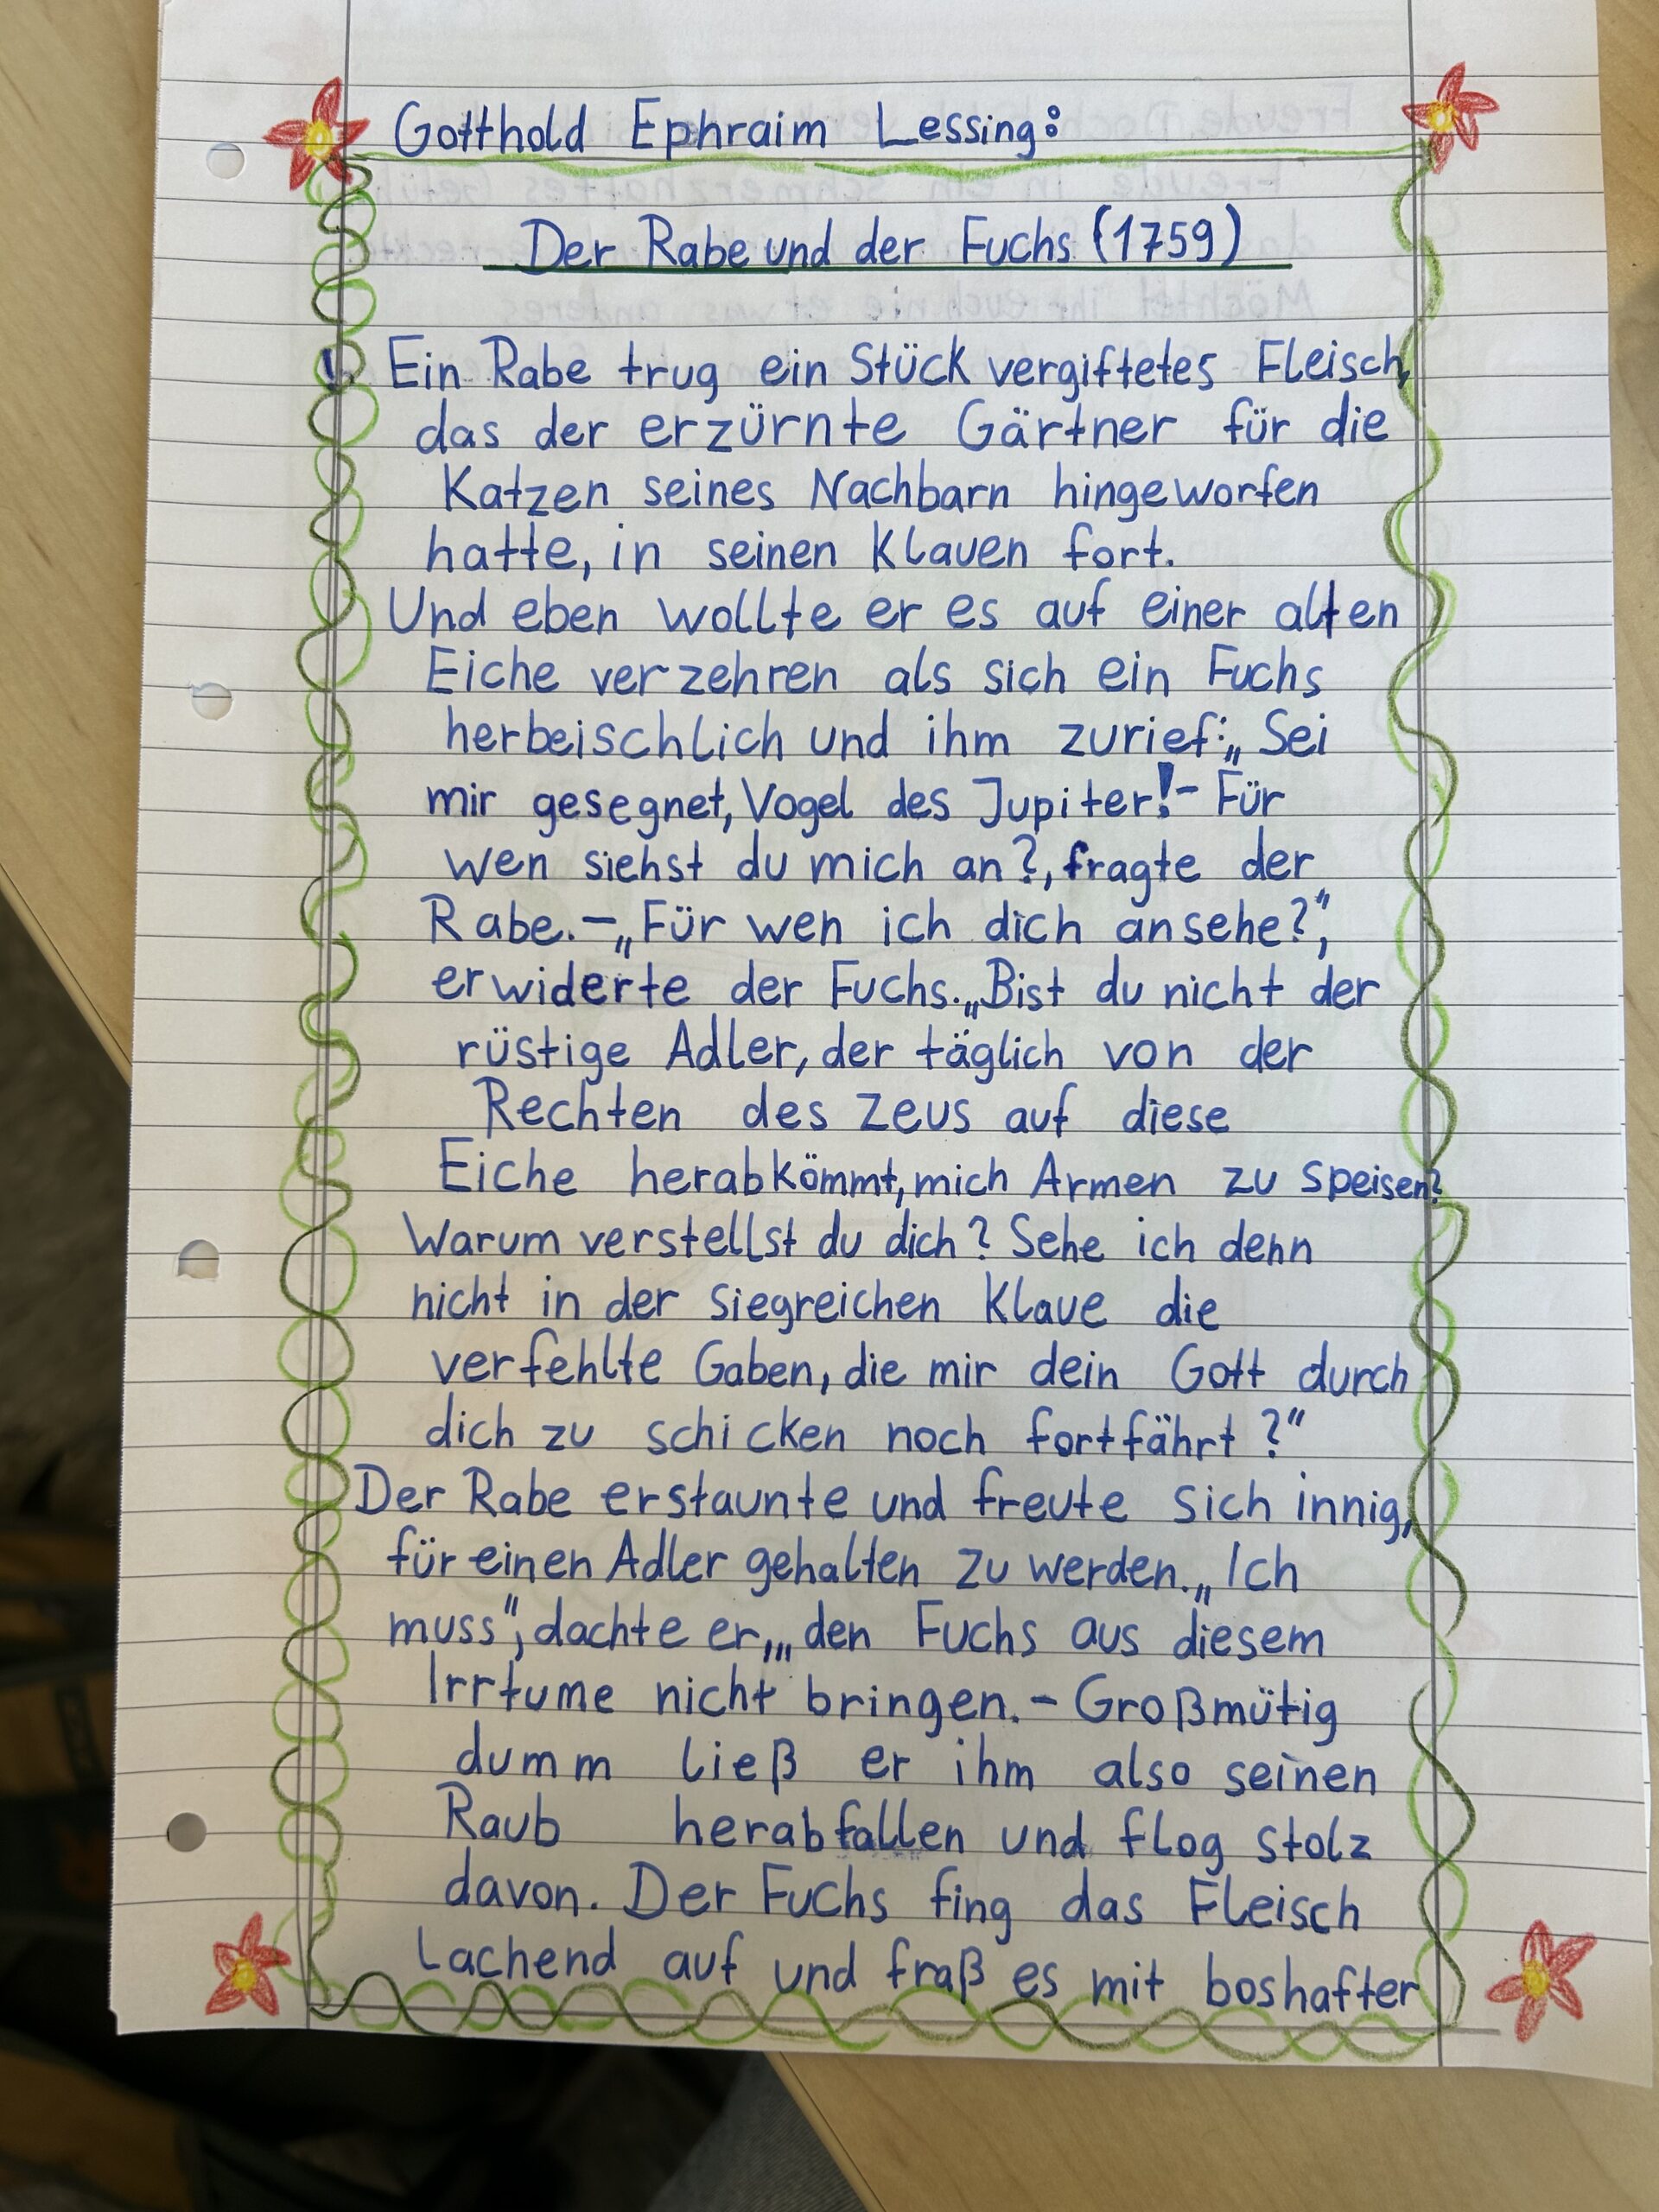 Gotthold Ephraim Lessing:
Der Rabe und der Fuchs (1759)
Ein Rabe trug ein Stück vergiftetes Fleisch,
das der erzürnte Gärtner für die
Katzen seines Nachbarn hingeworfen
hatte, in seinen Klauen fort.
Und eben wollte er es auf einer alten
Eiche verzehren als sich ein Fuchs
herbeischlich und ihm zurief: „Sei
mir gesegnet, Vogel des Jupiter!- Für
wen siehst du mich an?, fragte der
Rabe.-„Für wen ich dich ansehe?",
erwiderte der Fuchs. „Bist du nicht der
rüstige Adler, der täglich von der
Rechten des Zeus auf diese
Eiche herabkömmt, mich Armen zu speisen?
Warum verstellst du dich? Sehe ich denn
nicht in der siegreichen Klaue die
verfehlte Gaben, die mir dein Gott durch
dich zu schicken noch fortfährt?"
Der Rabe erstaunte und freute sich innig,
für einen Adler gehalten zu werden. „Ich
muss", dachte er, „den Fuchs aus diesem
Irrtume nicht bringen.- Großmütig
dumm ließ er ihm also seinen
Raub herabfallen und flog stolz
davon. Der Fuchs fing das Fleisch
lachend auf und fraß es mit boshafter